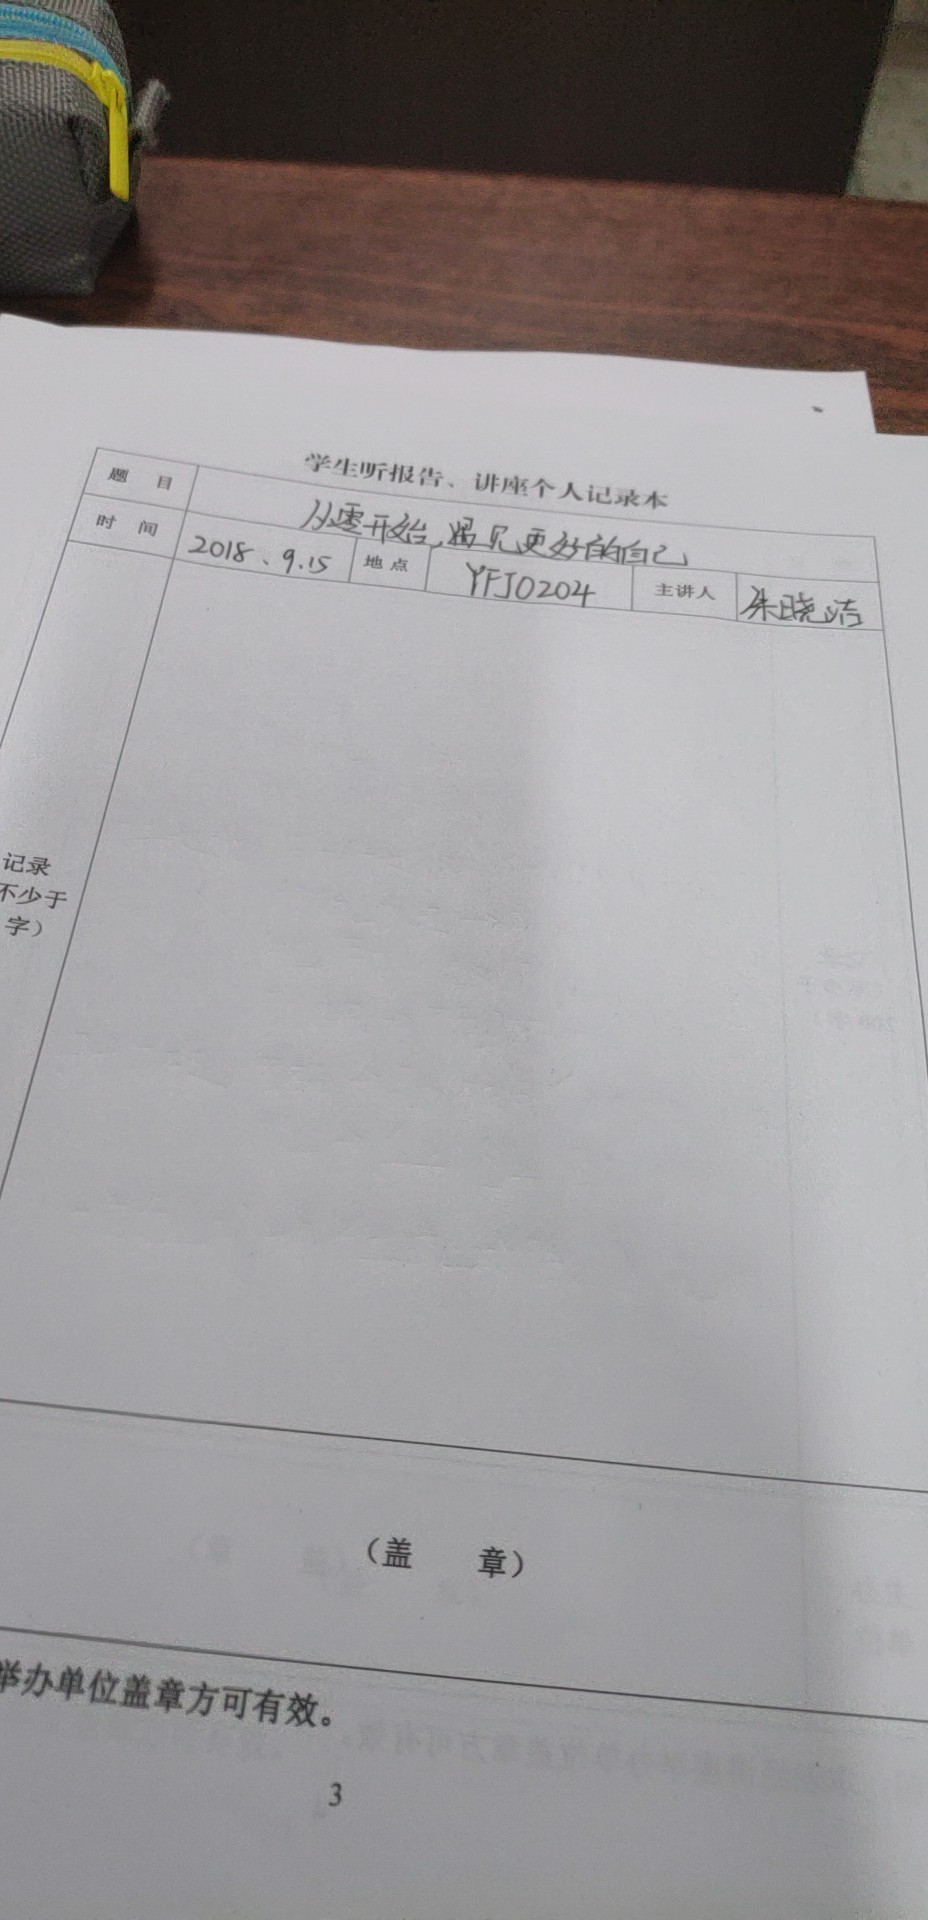 学生听报告、讲座个人记录本
题 目 从零开始,遇见更好的自己
时 间 2018、9.15 地点 YFJ0204 主讲人 朱晓洁
记录
不少于
字)
(盖 章)
举办单位盖章方可有效。
3